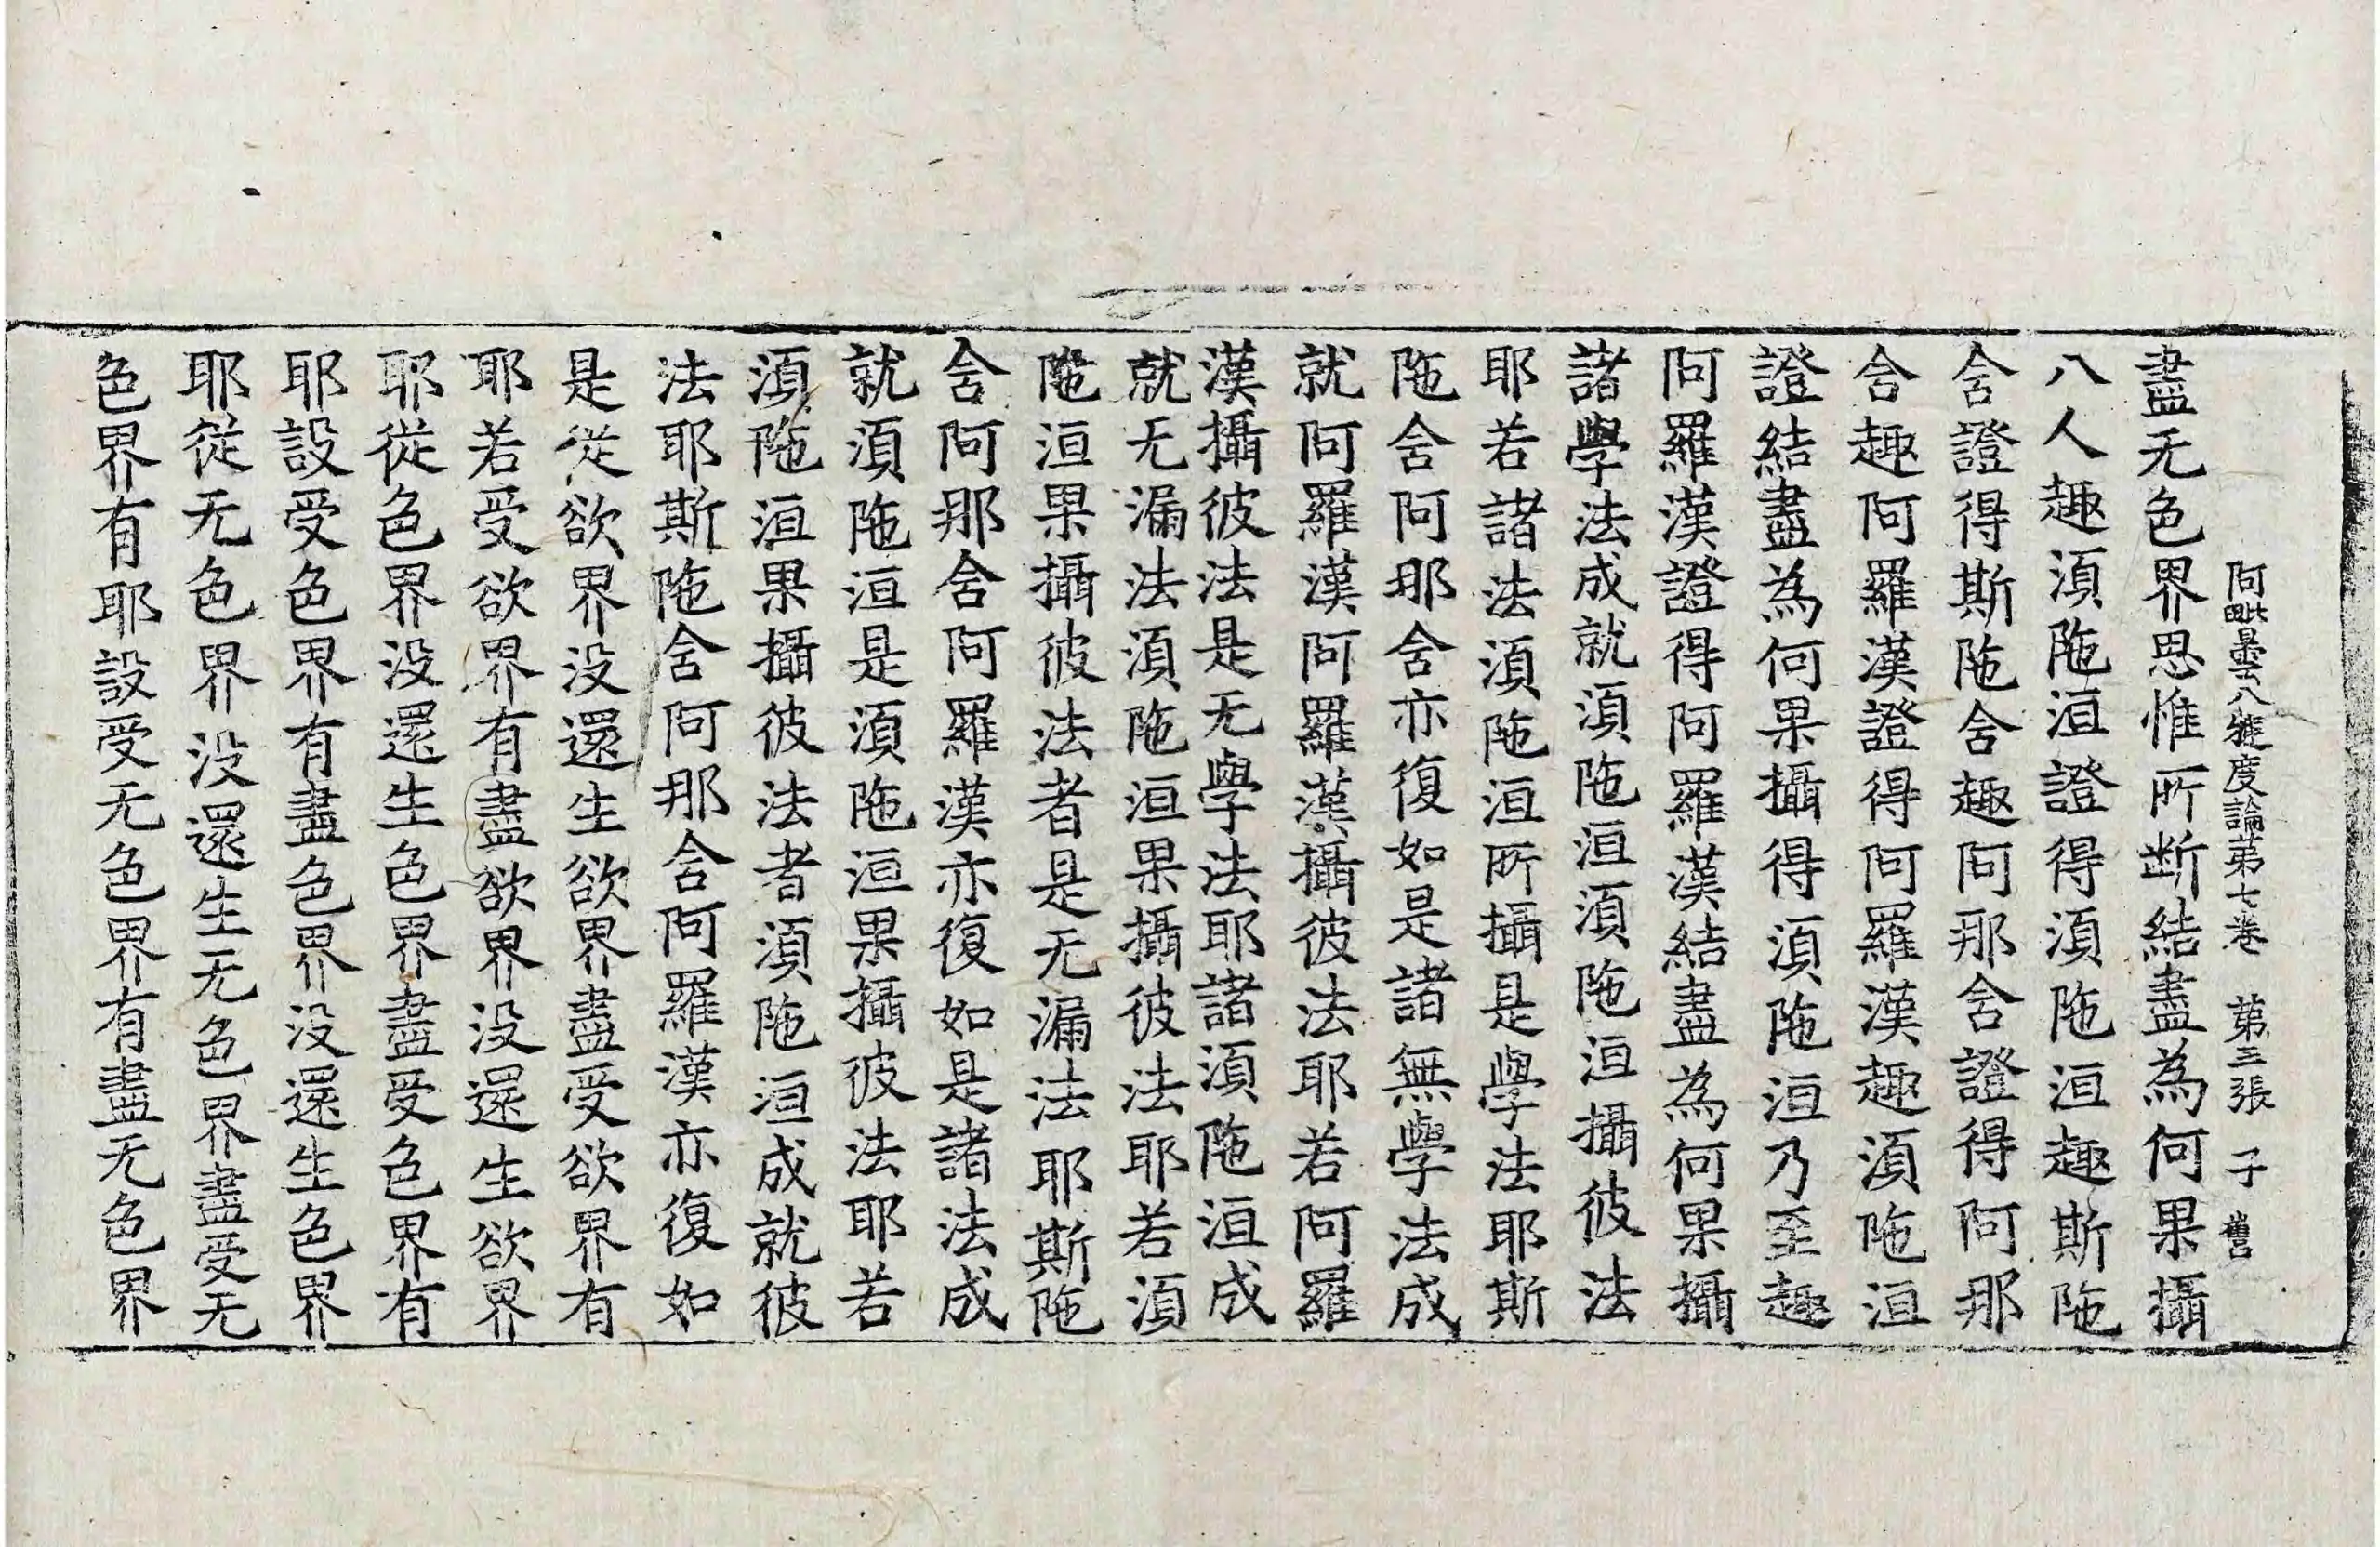 阿毗曇八犍度論第七卷　第三張　子　舊
盡无色界思惟所断結盡為何果攝
八人趣湏陁洹證得湏陁洹趣斯陁
含證得斯陁含趣阿那含證得阿那
含趣阿羅漢證得阿羅漢趣湏陁洹
證結盡為何果攝得湏陁洹乃至趣
阿羅漢證得阿羅漢結盡為何果攝
諸學法成就湏陁洹湏陁洹攝彼法
耶若諸法湏陁洹所攝是學法耶斯
陁含阿那含亦復如是諸無學法成
就阿羅漢阿羅漢攝彼法耶若阿羅
漢攝彼法是无學法耶諸湏陁洹成
就无漏法湏陁洹果攝彼法耶若湏
陁洹果攝彼法者是无漏法耶斯陁
含阿那含阿羅漢亦復如是諸法成
就湏陁洹是湏陁洹果攝彼法耶若
湏陁洹果攝彼法者湏陁洹成就彼
法耶斯陁含阿那含阿羅漢亦復如
是從欲界没還生欲界盡受欲界有
耶若受欲界有盡欲界没還生欲界
耶從色界没還生色界盡受色界有
耶設受色界有盡色界没還生色界
耶從无色界没還生无色界盡受无
色界有耶設受无色界有盡无色界